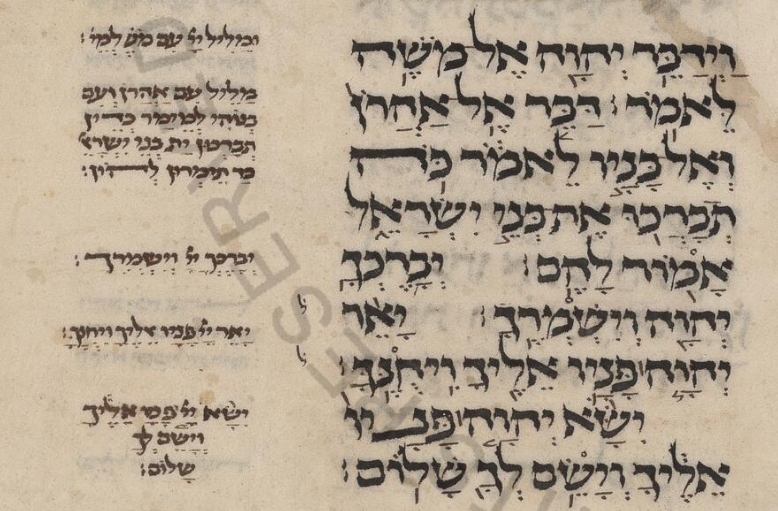 וַיְדַבֵּר יְהוָה אֶל מֹשֶׁה
לֵּאמֹר׃ דַּבֵּר אֶל אַהֲרֹן
וְאֶל בָּנָיו לֵאמֹר כֹּה
תְבָרְכוּ אֶת בְּנֵי יִשְׂרָאֵל
אָמוֹר לָהֶם׃ יְבָרֶכְךָ
יְהוָה וְיִשְׁמְרֶךָ׃ יָאֵר
יְהוָה פָּנָיו אֵלֶיךָ וִיחֻנֶּךָּ׃
יִשָּׂא יְהוָה פָּנָיו
אֵלֶיךָ וְיָשֵׂם לְךָ שָׁלוֹם׃
ומליל יי עם מש׳ למי׳׃
מליל עם אהרן ועם
בנוהי למימר כדין
תברכון ית בני ישרא׳
כד תימרון להון׃
יברכך יי וישמרך׃
יאר יי פניו אליך ויחנך׃
ישא יי פניו אליך
וישם לך
שלום׃